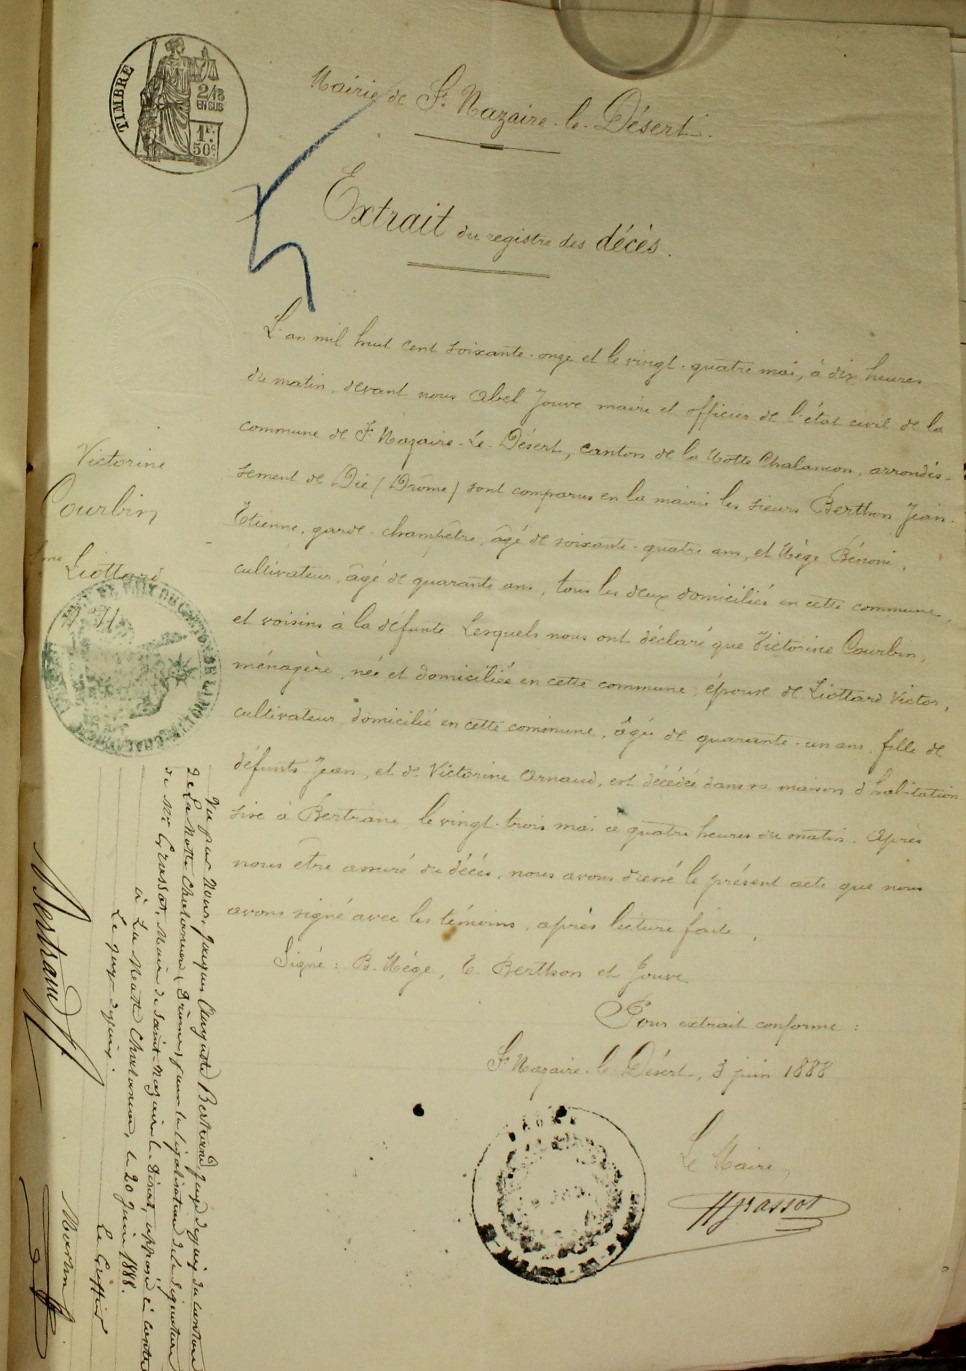 TIMBRE
2/10
EN SUS
1F.
50c
Mairie de St Nazaire-le-Désert.
Extrait du registre des décès.
L'an mil huit cent soixante-onze et le vingt-quatre mai, à dix heures
du matin, devant nous Abel Jouve maire et officier de l'état civil de la
commune de St Nazaire-Le-Désert, canton de la Motte Chalancon, arrondis-
sement de Die (Drôme) sont comparus en la mairie les sieurs Berthon Jean-
Etienne, garde-champêtre, âgé de soixante-quatre ans, et Mège Bénoni,
cultivateur, âgé de quarante ans, tous les deux domiciliés en cette commune,
et voisins à la défunte Lesquels nous ont déclaré que Victorine Courbin,
ménagère, née et domiciliée en cette commune, épouse de Liottard Victor,
cultivateur, domicilié en cette commune, âgée de quarante-un ans, fille de
défunts Jean, et de Victorine Arnaud, est décédée dans sa maison d'habitation
sise à Bertrane, le vingt-trois mai à quatre heures du matin. Après
nous être assuré du décès, nous avons dressé le présent acte que nous
avons signé avec les témoins, après lecture faite.
Signé: B. Mège, E. Berthon et Jouve
Pour extrait conforme:
St Nazaire-le-Désert, 3 juin 1888
Le Maire,
HGrassot
Victorine
Courbin
Liottard
1871
Vu par Nous, Jacques Auguste Bertrand, juge de paix du canton
de La Motte Chalancon, Drôme, pour la légalisation de la signature
de Mr Grassot, Maire de Saint-Nazaire-le-Désert, apposée ci-contre
à La Motte Chalancon, le 20 juin 1888.
Le juge de paix,
Le Greffier
Bertrand